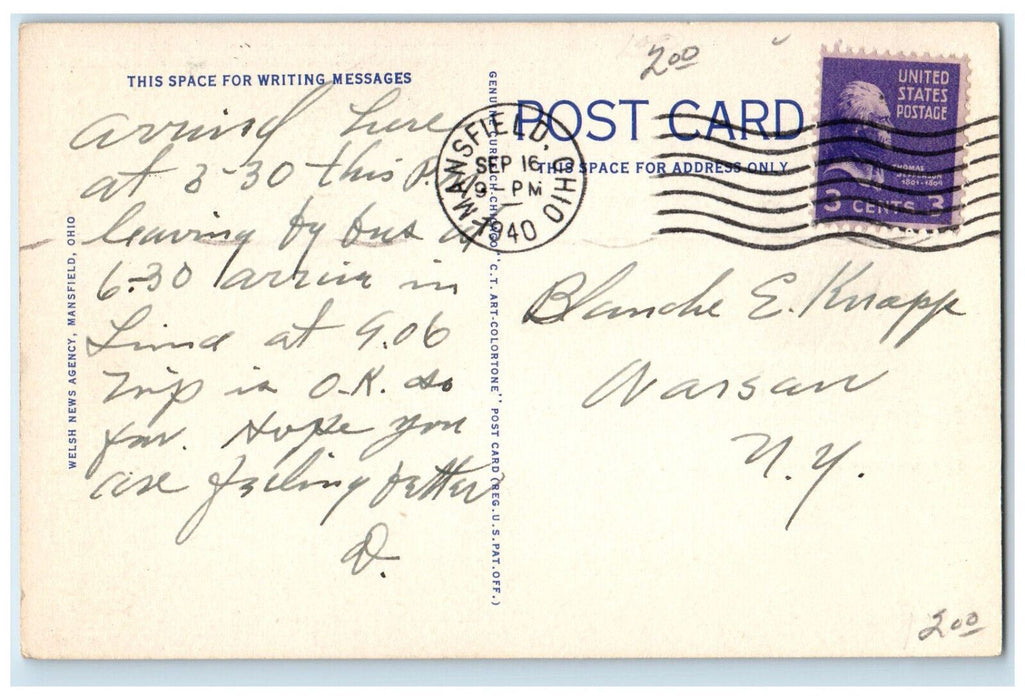 2.00
THIS SPACE FOR WRITING MESSAGES
POST CARD
THIS SPACE FOR ADDRESS ONLY
UNITED
STATES
POSTAGE
THOMAS
JEFFERSON
1801-1809
3 CENTS 3
MANSFIELD, OHIO
SEP 16
9 - PM
1940
Arrived here
at 3-30 this P.M.
leaving by bus at
6-30 arrive in
Lima at 9.06
Trip is O.K. so
far. Hope you
are feeling better
D.
Blanche E. Knapp
Warsaw
N.Y.
WELSH NEWS AGENCY, MANSFIELD, OHIO
"C.T. ART-COLORTONE" POST CARD (REG. U.S. PAT. OFF.)
2.00